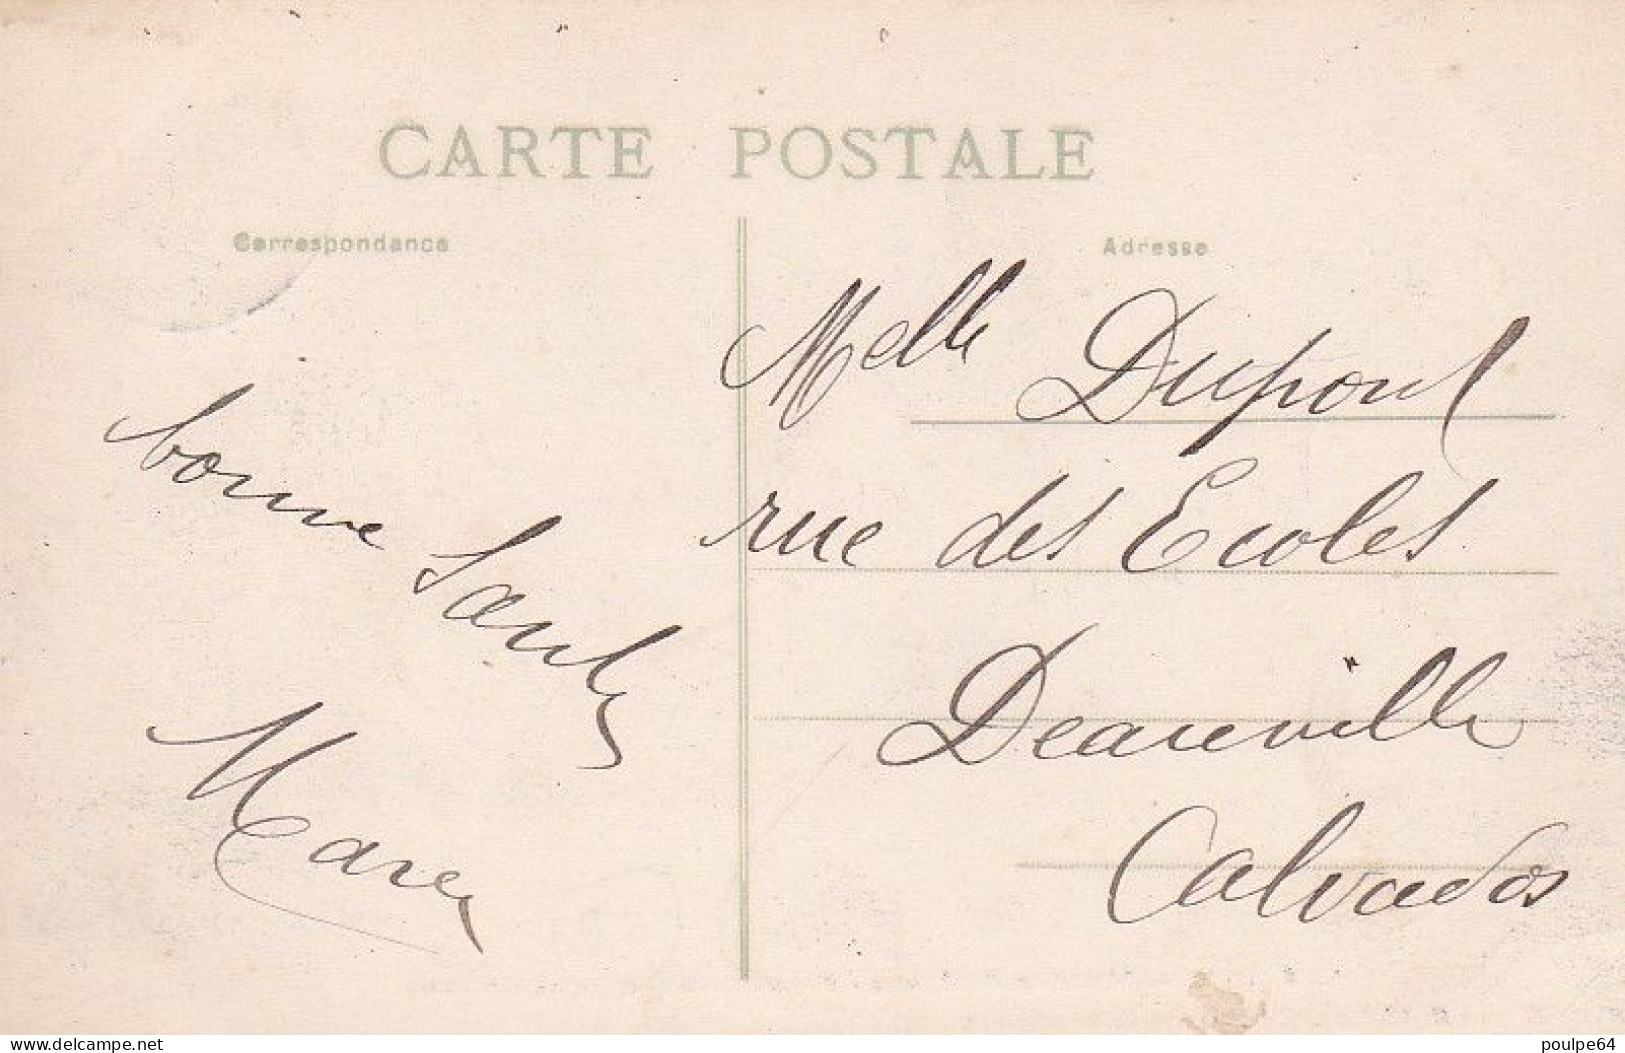 CARTE POSTALE
Correspondance
Adresse
bonne Santé
Melle Dupont
rue des Ecoles
Deauville
Calvados
delcampe.net
poulpe64